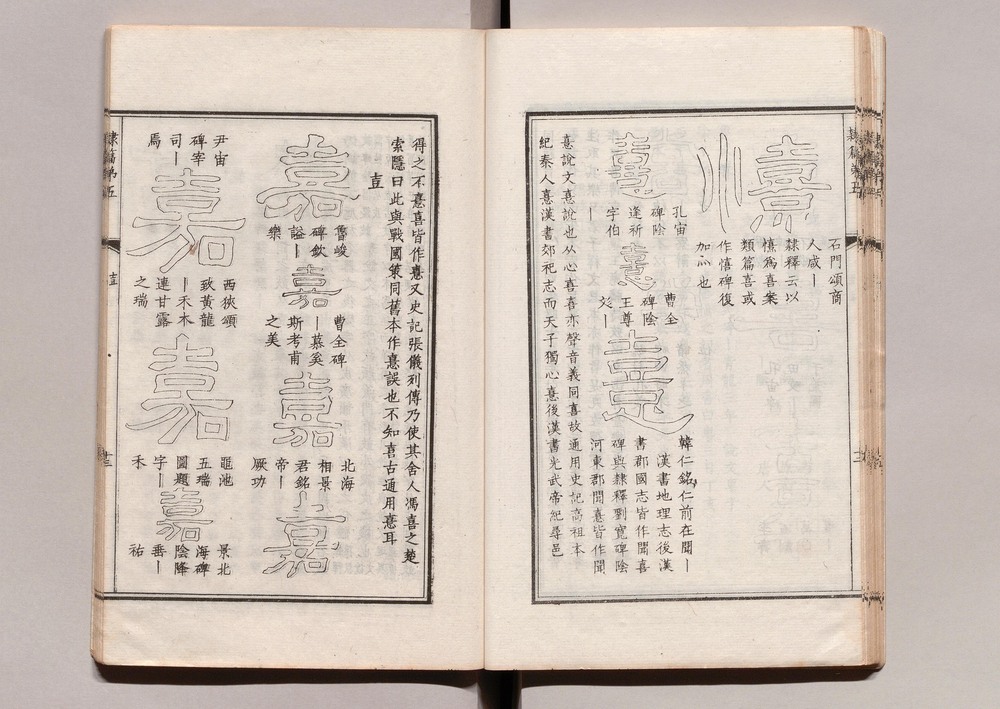 隸篇第五
憙
石門頌商
人咸｜
隸釋云以
憘為喜案
類篇喜或
作憘碑復
加灬也
憙
孔宙
碑陰
逢祈
字伯
｜
憙
曹全
碑陰
王尊
文｜
憙
韓仁銘仁前在聞｜
漢書地理志後漢
書郡國志皆作聞喜
碑與隸釋劉寬碑陰
河東郡聞憙皆作聞
憙說文憙說也从心喜喜亦聲音義同喜故通用史記高祖本
紀秦人憙漢書郊祀志而天子獨心憙後漢書光武帝紀尋邑
得之不憙喜皆作憙又史記張儀列傳乃使其舍人馮喜之楚
索隱曰此與戰國策同舊本作憙誤也不知喜古通用憙耳
壴
嘉
魯峻
碑欽
謚｜
樂
嘉
曹全碑
｜慕奚
斯考甫
之美
嘉
北海
相景
君銘
帝｜
厥功
嘉
尹宙
碑宰
司｜
焉
嘉
西狹頌
致黃龍
｜禾木
連甘露
之瑞
嘉
黽池
五瑞
圖題
字｜
禾
嘉
景北
海碑
陰降
番｜
祐
隸篇第五
壴